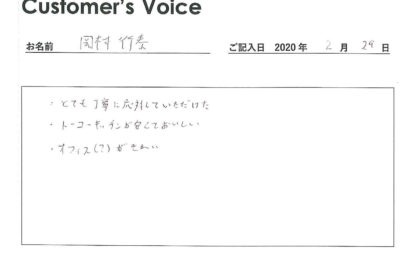 Customer's Voice
お名前 岡村 ご記入日 2020 年 2 月 29 日
・とても丁寧に応対していただけた
・トーコーキッチンが安くておいしい
・オフィス(?)がきれい